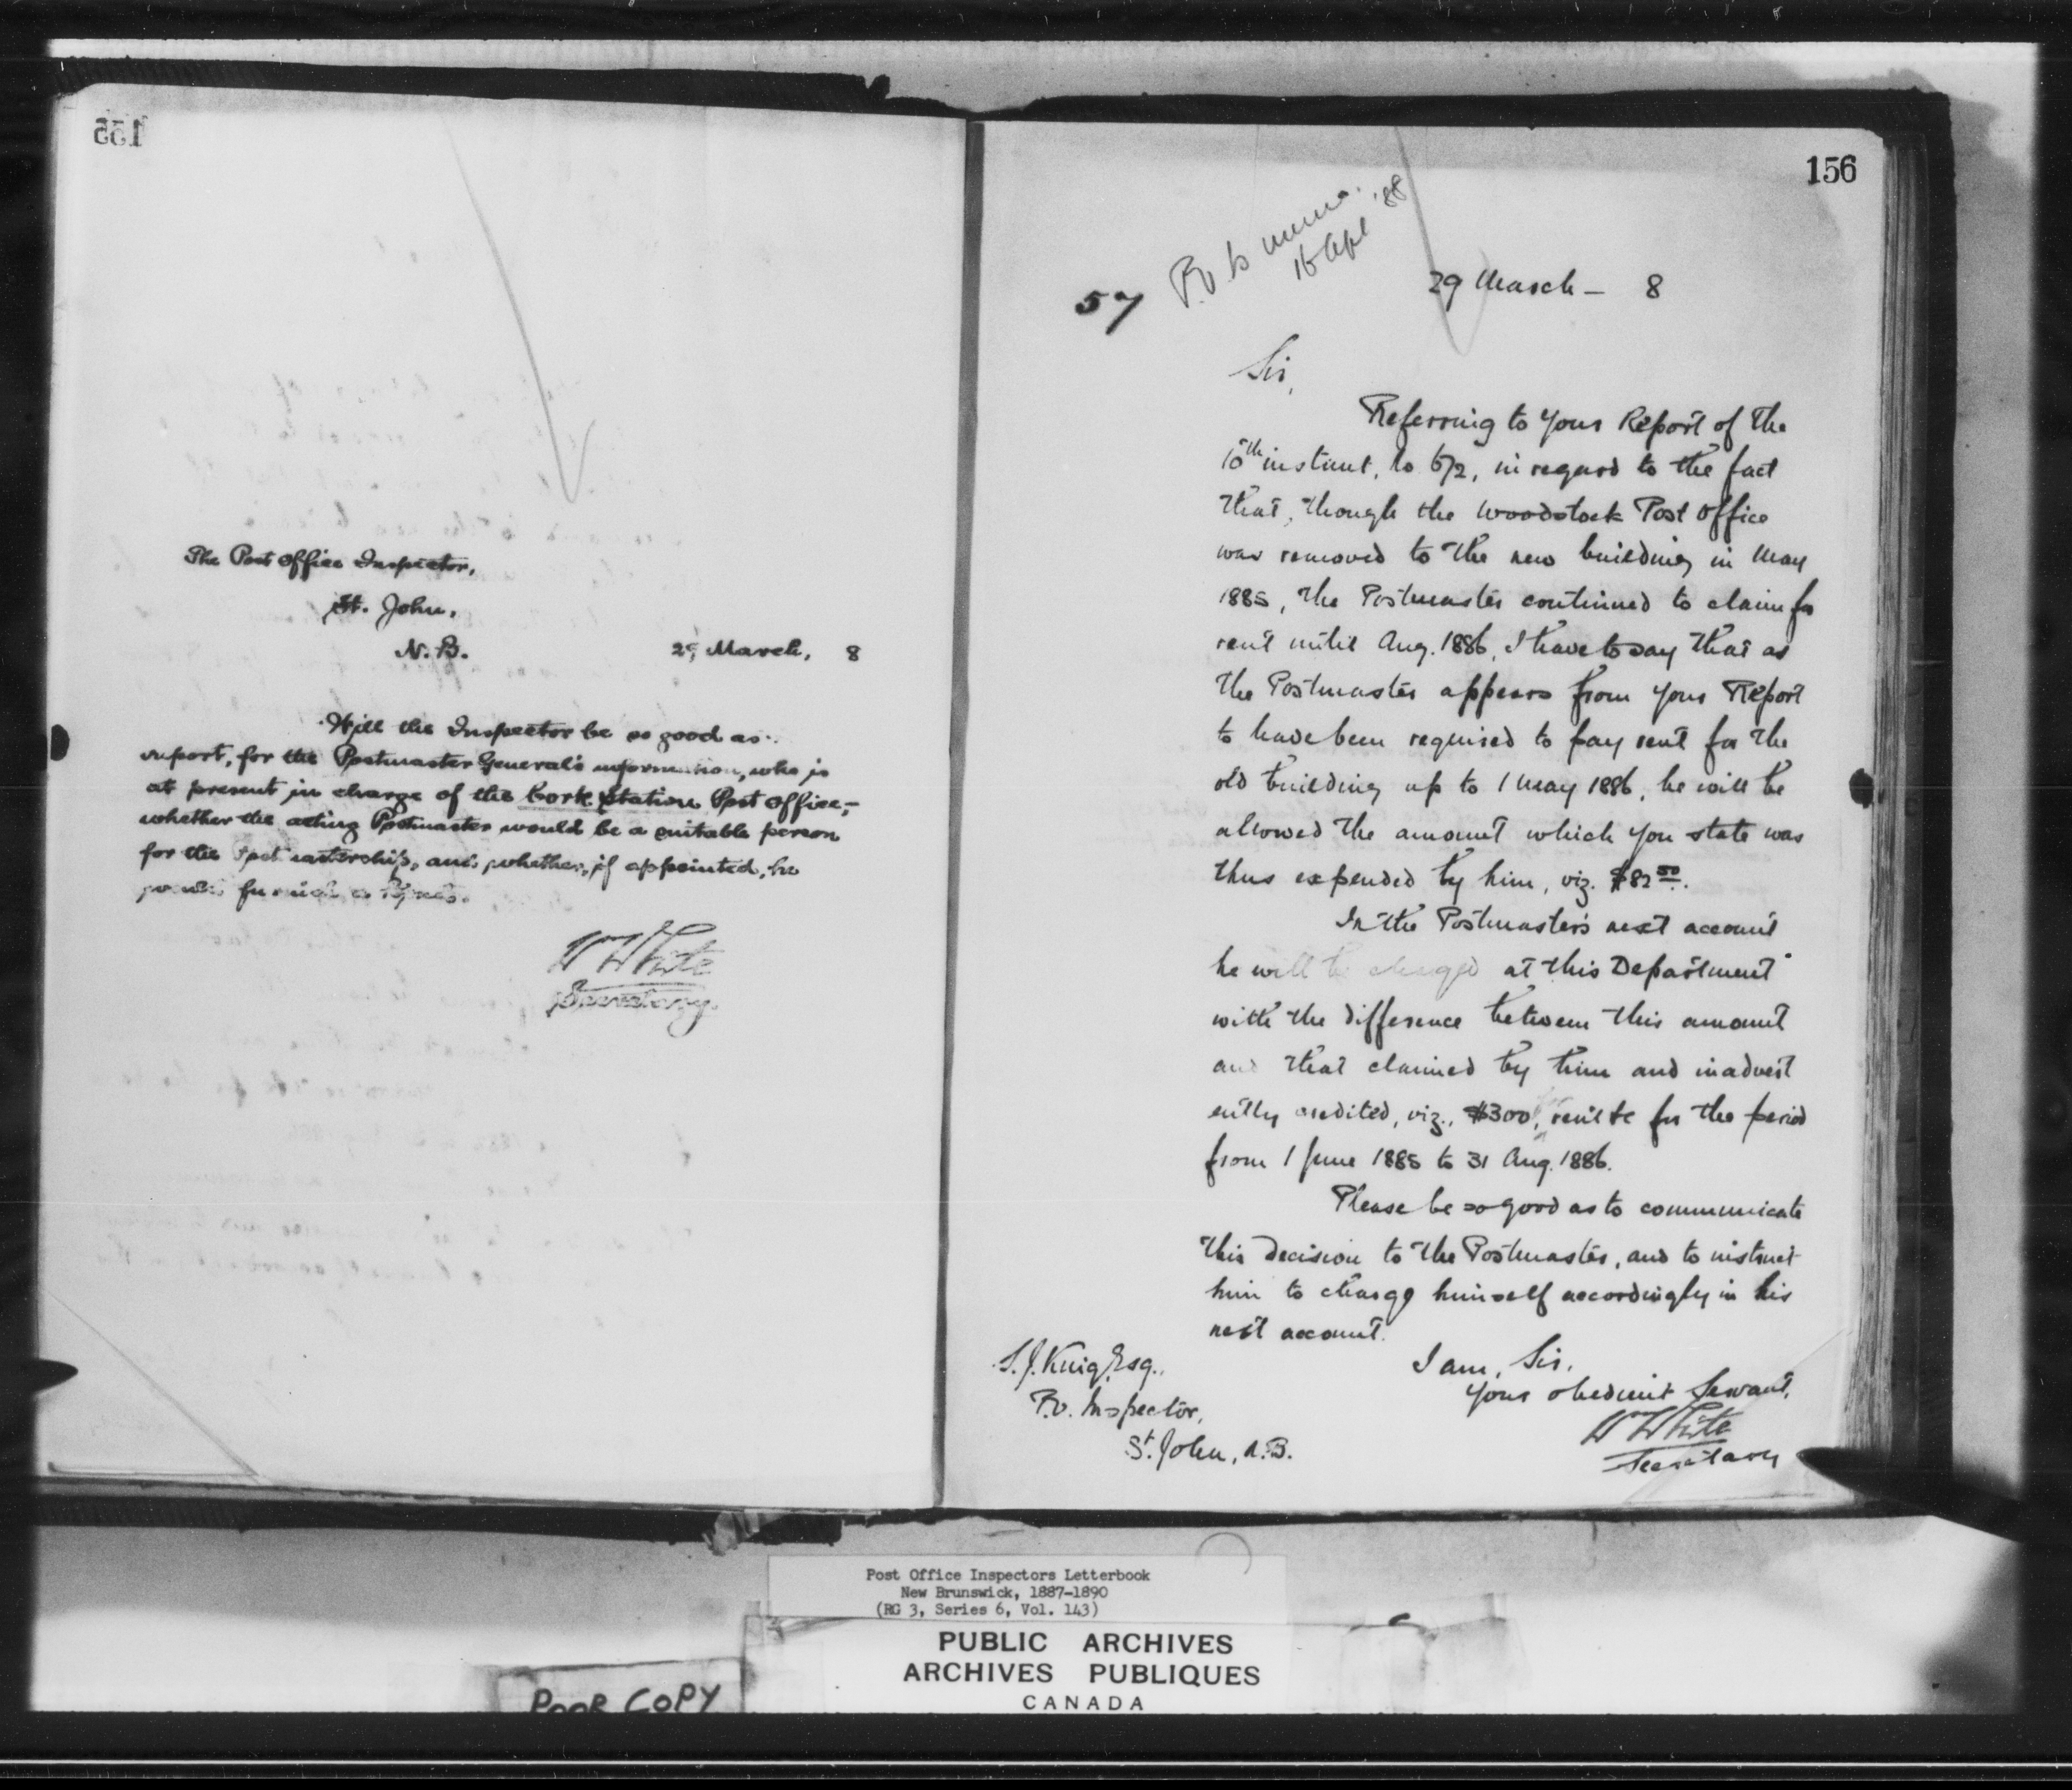 155
The Post Office Inspector,
St. John,
N.B. 29 March, 8
Will the Inspector be so good as
report, for the Postmaster General's information, who is
at present in charge of the Cork Station Post Office;-
whether the acting Postmaster would be a suitable person
for the Postmastership, and whether, if appointed, he
would furnish a
W White
Secretary.
156
P.O. to
16 Apl '88
57
29 March - 8
Sir,
Referring to your Report of the
10th instant, No 572, in regard to the fact
that, though the Woodstock Post Office
was removed to the new building in May
1885, the Postmaster continued to claim for
rent until Aug. 1886, I have to say that as
the Postmaster appears from your Report
to have been required to pay rent for the
old building up to 1 May 1886, he will be
allowed the amount which you state was
thus expended by him, viz. $82 50.
In the Postmaster's next account
he will be charged at this Department
with the difference between this amount
and that claimed by him and inadvert
ently credited, viz., $300, rent &c for the period
from 1 June 1885 to 31 Aug. 1886.
Please be so good as to communicate
this decision to the Postmaster, and to instruct
him to charge himself accordingly in his
next account.
I am, Sir,
Your obedient Servant,
W White
Secretary
S.J. King, Esq.,
P.O. Inspector,
St. John, N.B.
Post Office Inspectors Letterbook
New Brunswick, 1887-1890
(RG 3, Series 6, Vol. 143)
PUBLIC ARCHIVES
ARCHIVES PUBLIQUES
CANADA
POOR COPY